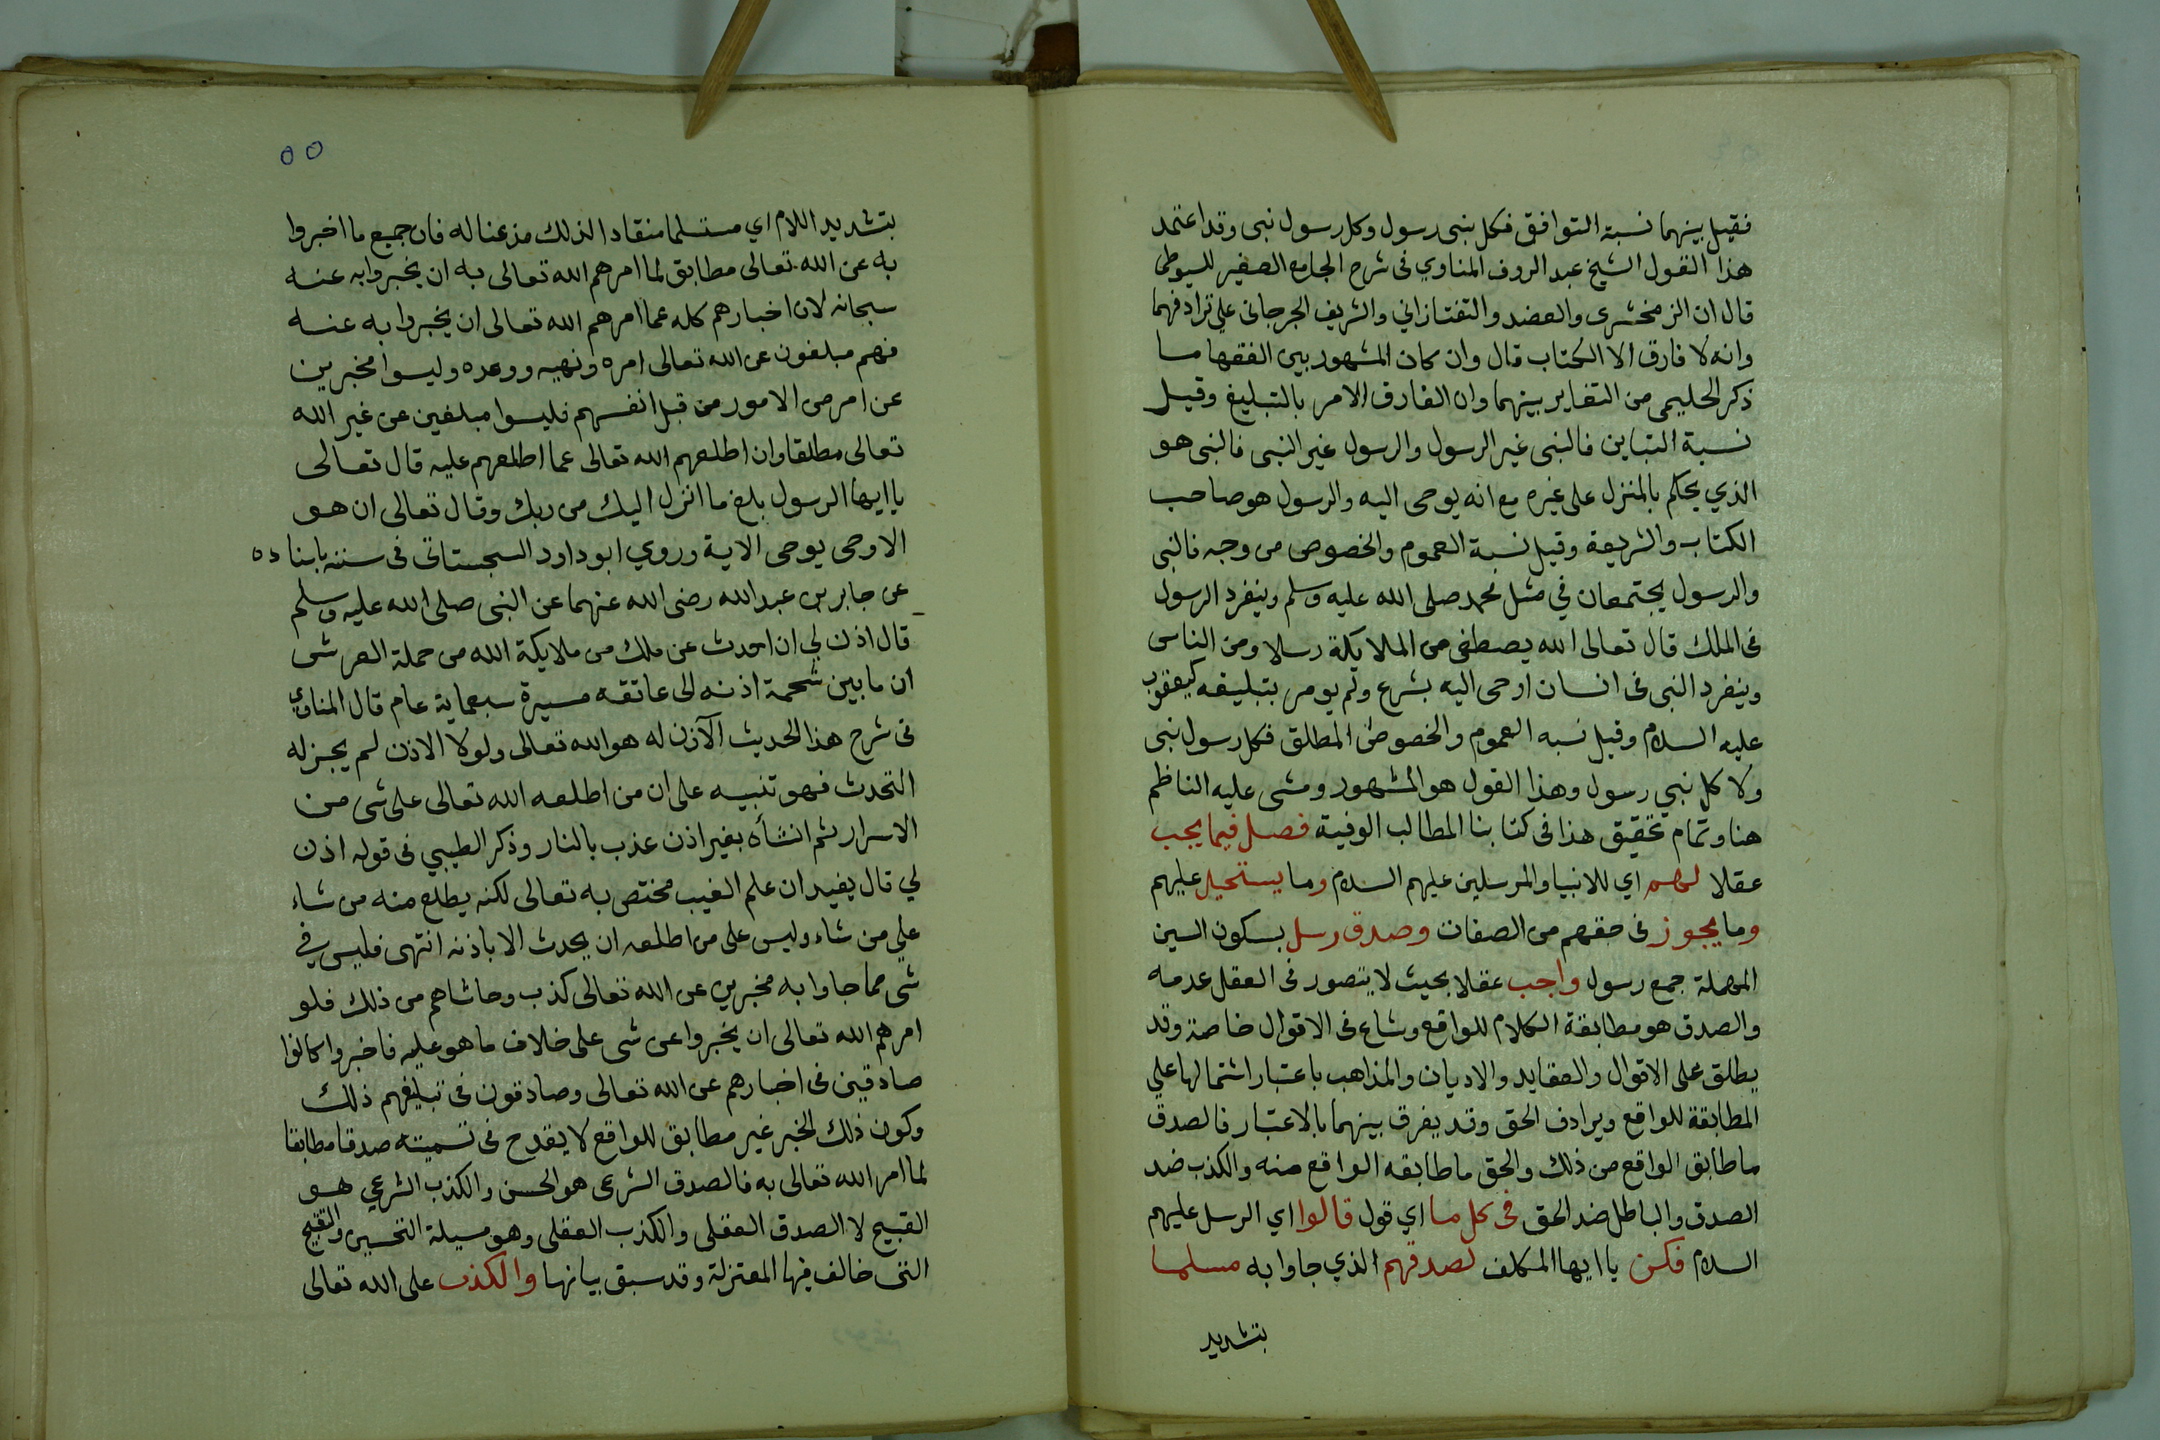 فقيل بينهما نسبة التوافق فكل نبى رسول وكل رسول نبى وقد اعتمد
هذا القول الشيخ عبد الروف المناوي فى شرح الجامع الصغير للسيوطى
قال ان الزمخشرى والعضد والتفتازاني والشريف الجرجانى على ترادفهما
وانه لا فارق الا الكتاب قال وان كان المشهور بين الفقها ما
ذكر الحليمى من التغاير بينهما وان الفارق الامر بالتبليغ وقيل
نسبة التباين فالنبى غير الرسول والرسول غير النبى فالنبى هو
الذي يحكم بالمنزل على غيره مع انه يوحى اليه والرسول هو صاحب
الكتاب والشريعة وقيل نسبة العموم والخصوص من وجه فالنبى
والرسول يجتمعان في مثل محمد صلى الله عليه وسلم وينفرد الرسول
فى الملك قال تعالى الله يصطفى من الملايكة رسلا ومن الناس
وينفرد النبى فى انسان اوحى اليه بشرع ولم يومر بتبليغه كيعقوب
عليه السلام وقيل نسبه العموم والخصوص المطلق فكل رسول نبى
ولا كل نبي رسول وهذا القول هو المشهور ومشى عليه الناظم
هنا وتمام تحقيق هذا فى كتابنا المطالب الوفية فصل فيما يجب
عقلا لهم اي للانبيا والمرسلين عليهم السلام وما يستحيل عليهم
وما يجوز فى حقهم من الصفات وصدق رسل بسكون السين
المهملة جمع رسول واجب عقلا بحيث لا يتصور فى العقل عدمه
والصدق هو مطابقة الكلام للواقع وشاع فى الاقوال خاصة وقد
يطلق على الاقوال والعقايد والاديان والمذاهب باعتبار اشتمالها علي
المطابقة للواقع ويرادف الحق وقد يفرق بينهما بالاعتبار فالصدق
ما طابق الواقع من ذلك والحق ما طابقه الواقع منه والكذب ضد
الصدق والباطل ضد الحق فى كل ما اي قول قالوا اي الرسل عليهم
السلام فكن يا ايها المكلف لصدقهم الذي جاوا به مسلما
بتشديد
٥٥
بتشديد اللام اي مستسلما منقادا لذلك مذعنا له فان جميع ما اخبروا
به عن الله تعالى مطابق لما امرهم الله تعالى به ان يخبروا به عنه
سبحانه لان اخبارهم كله عما امرهم الله تعالى ان يخبروا به عنه
فهم مبلغون عن الله تعالى امره ونهيه ووعده وليسوا مخبرين
عن امر من الامور من قبل انفسهم فليسوا مبلغين عن غير الله
تعالى مطلقا وان اطلعهم الله تعالى عما اطلعهم عليه قال تعالى
يا ايها الرسول بلغ ما انزل اليك من ربك وقال تعالى ان هو
الا وحى يوحى الاية وروي ابو داود السجستانى فى سننه باسناده
عن جابر بن عبد الله رضى الله عنهما عن النبى صلى الله عليه وسلم
قال اذن لي ان احدث عن ملك من ملايكة الله من حملة العرش
ان ما بين شحمة اذنه الى عاتقه مسيرة سبعماية عام قال المناوي
فى شرح هذا الحديث الآذن له هو الله تعالى ولولا الاذن لم يجز له
التحدث فهو تنبيه على ان من اطلعه الله تعالى على شى من
الاسرار ثم انشأه بغير اذن عذب بالنار وذكر الطيبي فى قوله اذن
لي قال يفيد ان علم الغيب مختص به تعالى لكنه يطلع منه من شاء
علي من شاء وليس على من اطلعه ان يحدث الا باذنه انتهى فليس في
شى مما جاوا به مخبرين عن الله تعالى كذب وحاشاهم من ذلك فلو
امرهم الله تعالى ان يخبروا عن شى على خلاف ما هو عليه فاخبروا كانوا
صادقين فى اخبارهم عن الله تعالى وصادقون فى تبليغهم ذلك
وكون ذلك الخبر غير مطابق للواقع لا يقدح فى تسميته صدقا مطابقا
لما امر الله تعالى به فالصدق الشرعى هو الحسن والكذب الشرعي هو
القبيح لا الصدق العقلى والكذب العقلى وهو مسيلة التحسين والتقبيح
التى خالف فيها المعتزلة وقد سبق بيانها والكذب على الله تعالى